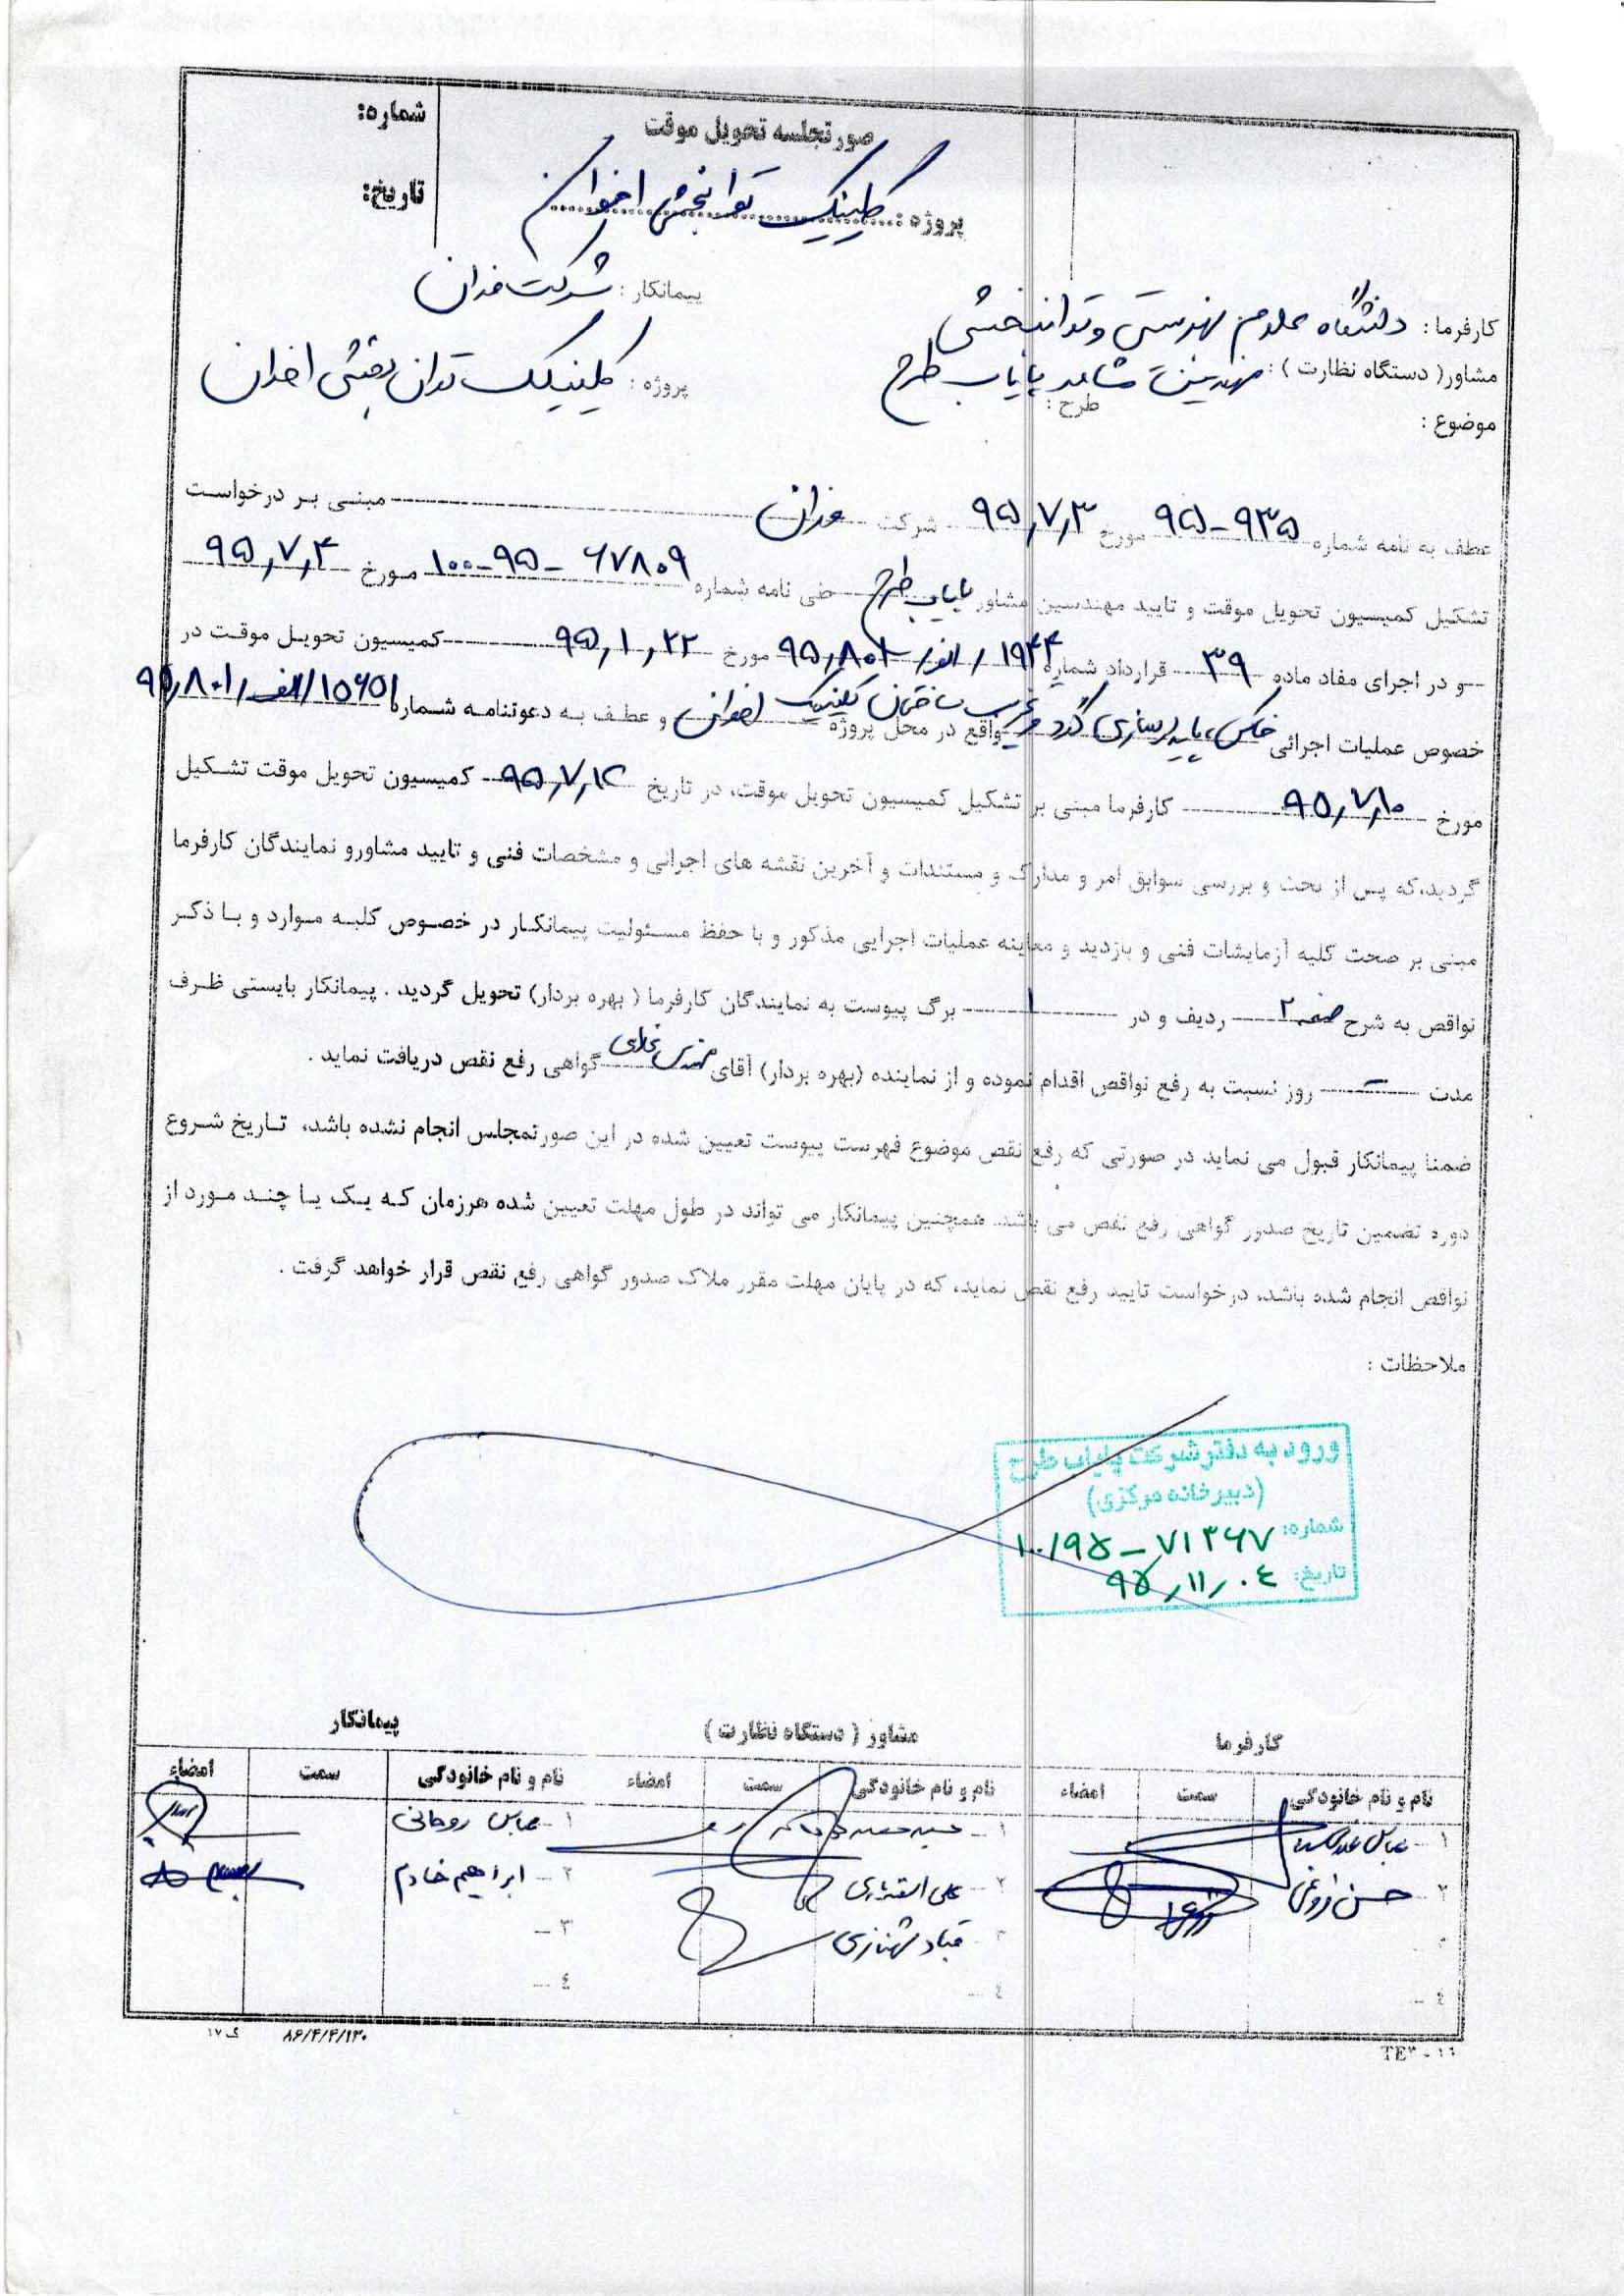 صورتجلسه تحویل موقت
پروژه: کلینیک توانبخشی اخوان
شماره:
تاریخ:
کارفرما: دانشگاه علوم بهزیستی و توانبخشی
پیمانکار: شرکت
مشاور( دستگاه نظارت ): مهندسین مشاور پایاب طرح
طرح:
پروژه: کلینیک توان بخشی اخوان
موضوع:
عطف به نامه شماره ۹۳۵-۹۵ مورخ ۹۵/۷/۳ شرکت مبنی بر درخواست
تشکیل کمیسیون تحویل موقت و تایید مهندسین مشاور پایاب طرح طی نامه شماره ۶۷۸۰۹-۹۵-۱۰۰ مورخ ۹۵/۷/۴
و در اجرای مفاد ماده ۳۹ قرارداد شماره مورخ ۹۵/۱/۲۲ کمیسیون تحویل موقت در
خصوص عملیات اجرائی پایدارسازی گود غرب ساختمان کلینیک واقع در محل پروژه اخوان و عطف به دعوتنامه شماره ۱۵۶۵۱/الف/۹۵/۸۰۱
مورخ ۹۵/۷/۱۰ کارفرما مبنی بر تشکیل کمیسیون تحویل موقت، در تاریخ کمیسیون تحویل موقت تشکیل
گردید،که پس از بحث و بررسی سوابق امر و مدارک و مستندات و آخرین نقشه های اجرائی و مشخصات فنی و تایید مشاورو نمایندگان کارفرما
مبنی بر صحت کلیه آزمایشات فنی و بازدید و معاینه عملیات اجرایی مذکور و با حفظ مسئولیت پیمانکار در خصوص کلیه موارد و با ذکر
نواقص به شرح صفحه ۲ ردیف و در ۱ برگ پیوست به نمایندگان کارفرما ( بهره بردار) تحویل گردید . پیمانکار بایستی ظرف
مدت روز نسبت به رفع نواقص اقدام نموده و از نماینده (بهره بردار) آقای مهندس گواهی رفع نقص دریافت نماید .
ضمنا پیمانکار قبول می نماید در صورتی که رفع نقص موضوع فهرست پیوست تعیین شده در این صورتمجلس انجام نشده باشد، تاریخ شروع
دوره تضمین تاریخ صدور گواهی رفع نقص می باشد. همچنین پیمانکار می تواند در طول مهلت تعیین شده هرزمان که یک یا چند مورد از
نواقص انجام شده باشد، درخواست تایید رفع نقص نماید، که در پایان مهلت مقرر ملاک صدور گواهی رفع نقص قرار خواهد گرفت .
ملاحظات :
ورود به دفتر شرکت پایاب طرح
(دبیرخانه مرکزی)
شماره: ۱۰۰/۹۵-۷۱۳۶۷
تاریخ: ۹۵/۱۱/۰۴
کارفرما
مشاور ( دستگاه نظارت )
پیمانکار
نام و نام خانوادگی سمت امضاء نام و نام خانوادگی سمت امضاء نام و نام خانوادگی سمت امضاء
۱- عباس ۱- ۱- عباس روحانی
۲- حسن ۲- علی ۲- ابراهیم خادم
۳- ۳- قباد شهنازی ۳-
۴- ۴- ۴-
۸۶/۴/۴/۱۳۰
ک ۱۷
TE۳-۱۶